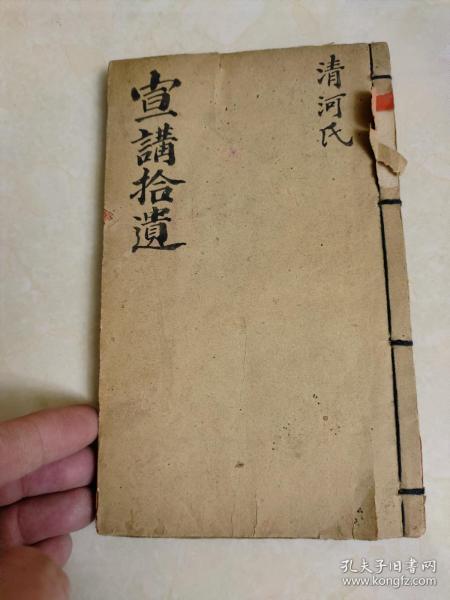 清河氏
宣講拾遺
孔夫子旧书网
www.kongfz.com